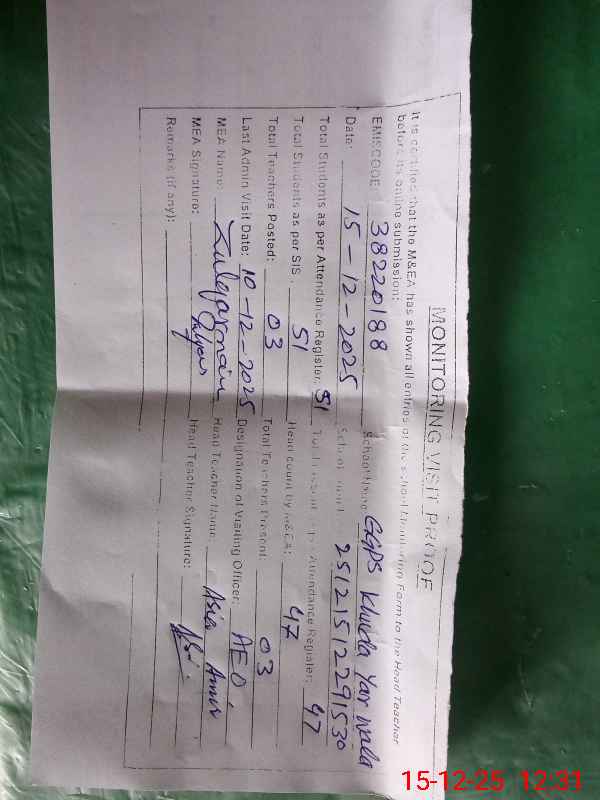 MONITORING VISIT PROOF
It is certified that the M&EA has shown all entries of the school Monitoring Form to the Head Teacher
before its online submission:
EMISCODE: 38220188 School Name: GGPS Khuda Yar Wala
Date: 15-12-2025 School 25121512291530
Total Students as per Attendance Register: 51 Total Present as per Attendance Register: 47
Total Students as per SIS: 51 Head count by M&EA: 47
Total Teachers Posted: 03 Total Teachers Present: 03
Last Admin Visit Date: 10-12-2025 Designation of Visiting Officer: AEO
MEA Name: Zulqarnain Head Teacher Name: Asia Amir
MEA Signature: Head Teacher Signature:
Remarks (if any):
15-12-25 12:31